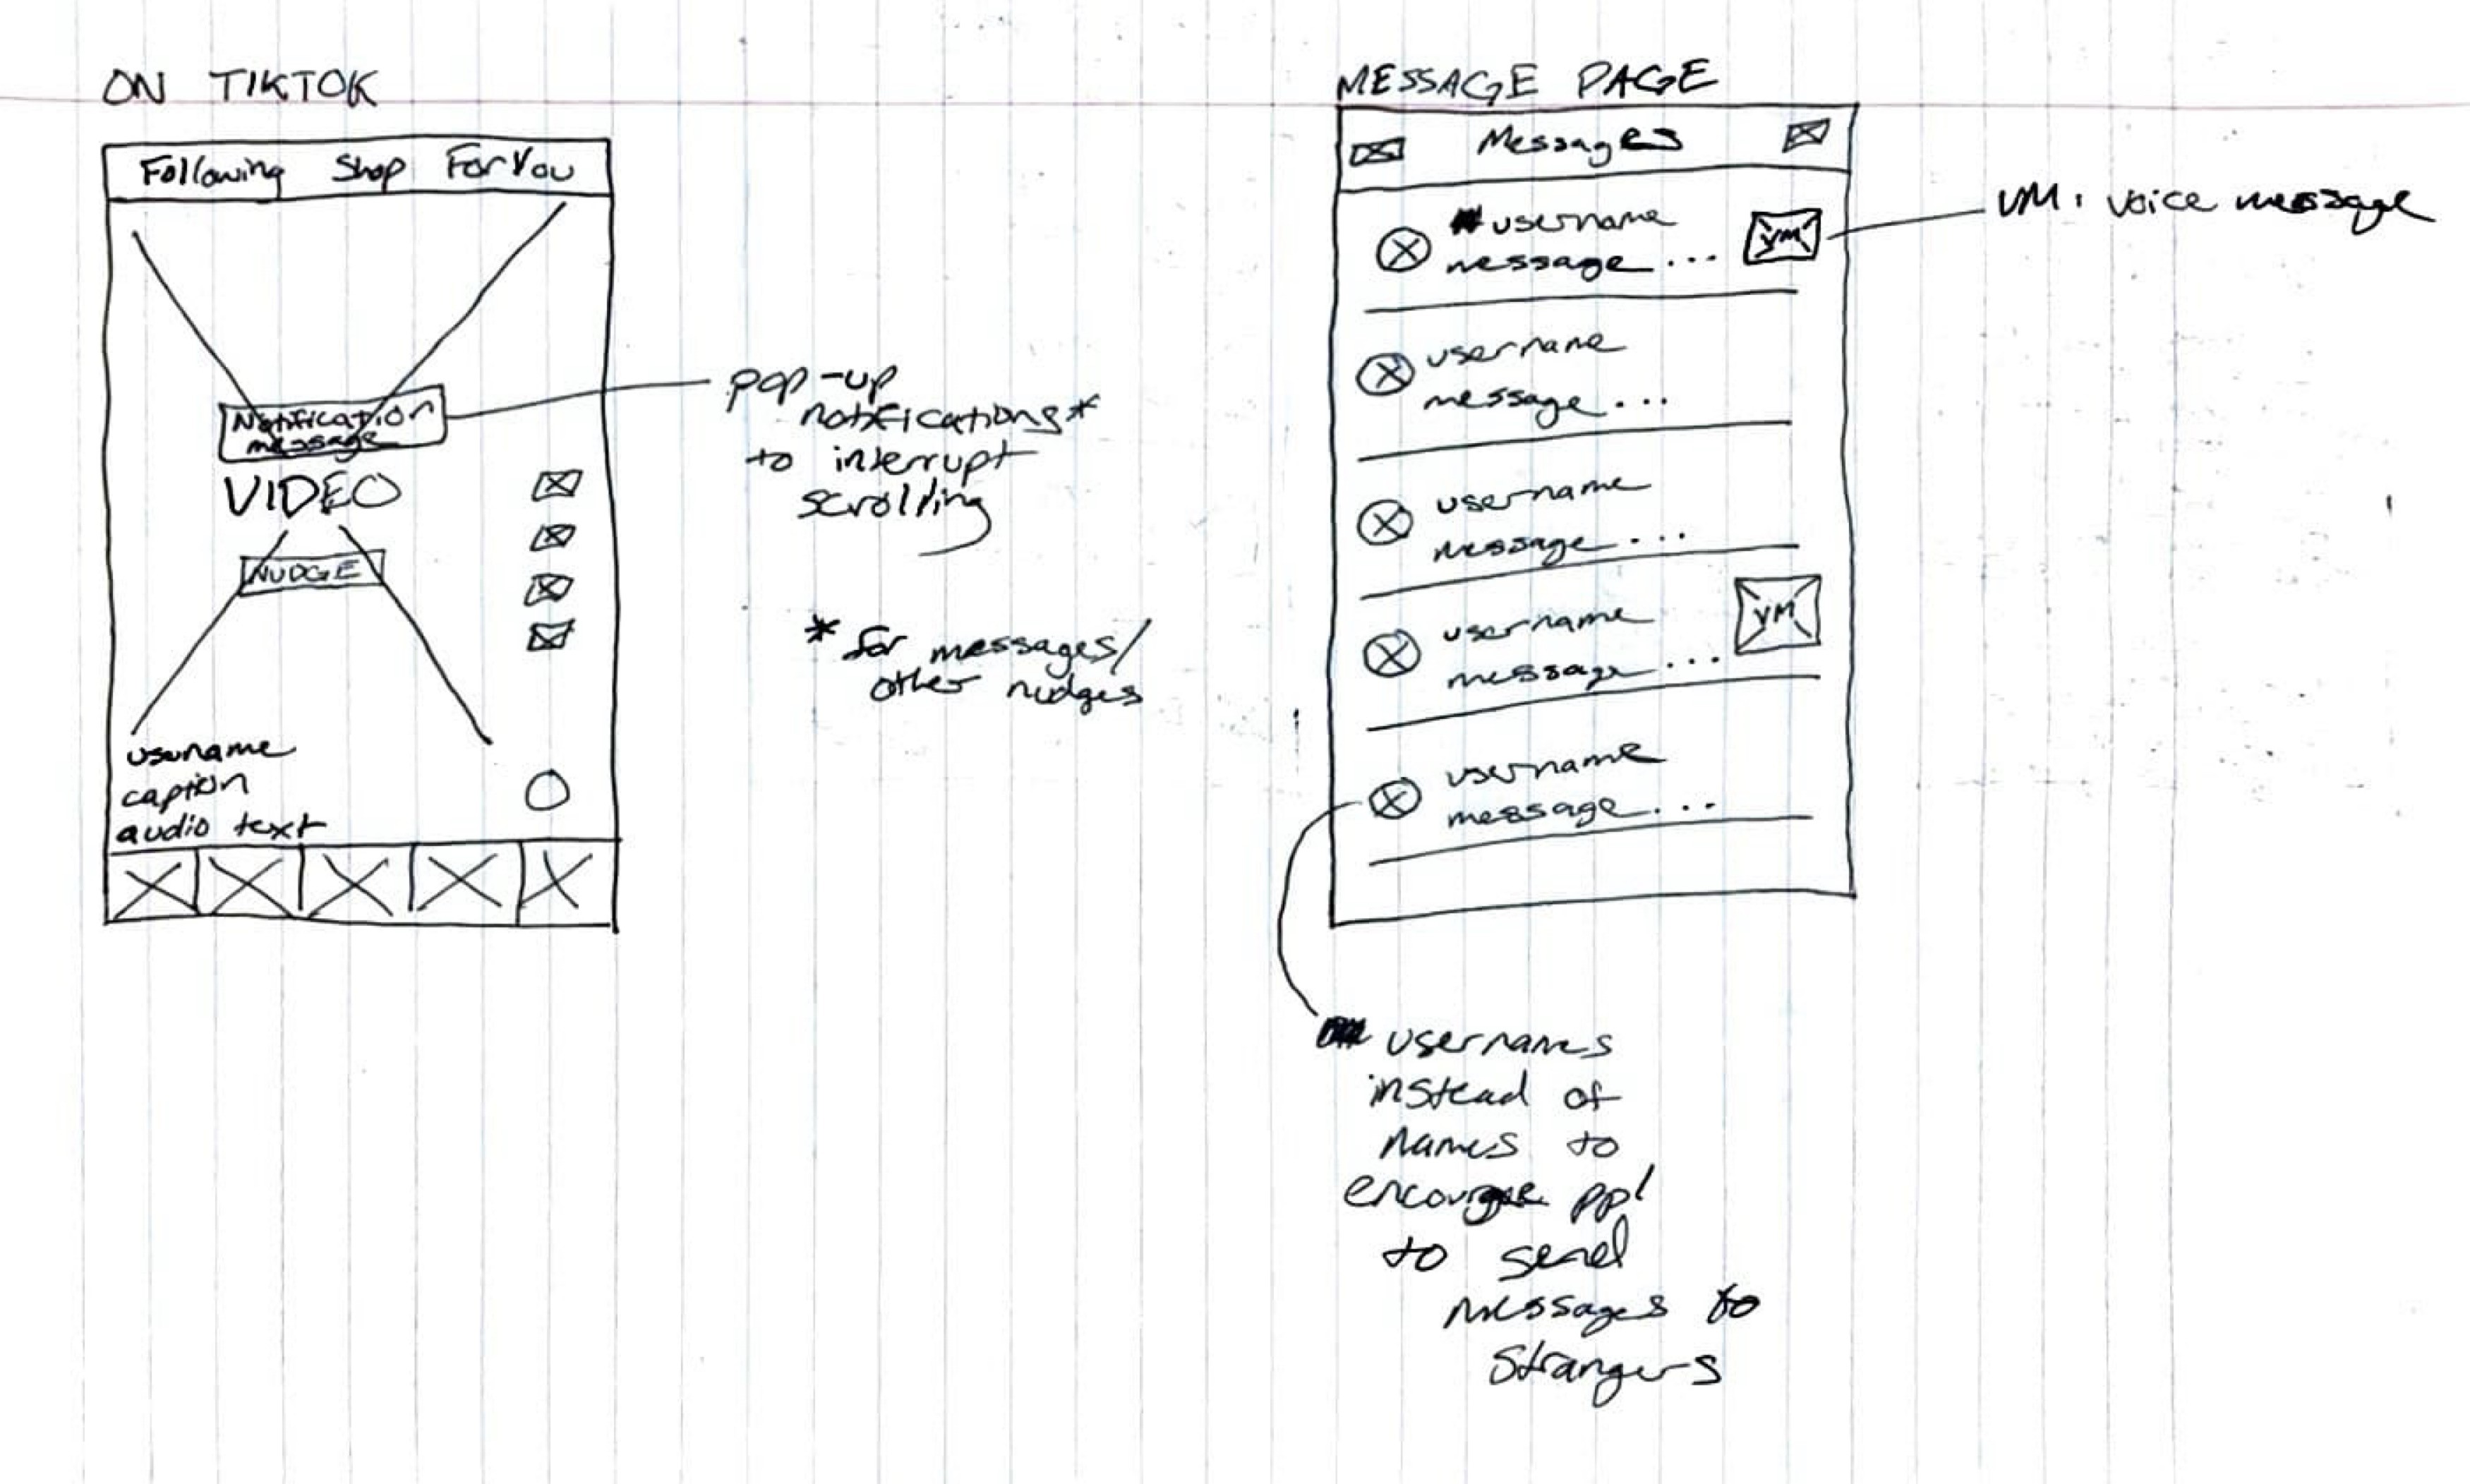 ON TIKTOK
Following Shop For You
Notification
message
VIDEO
NUDGE
username
caption
audio text
pop-up
notifications*
to interrupt
scrolling
* for messages/
other nudges
MESSAGE PAGE
Messages
username
message...
VM
VM: voice message
username
message...
username
message...
username
message...
VM
username
message...
usernames
instead of
names to
encourge ppl
to send
messages to
strangers